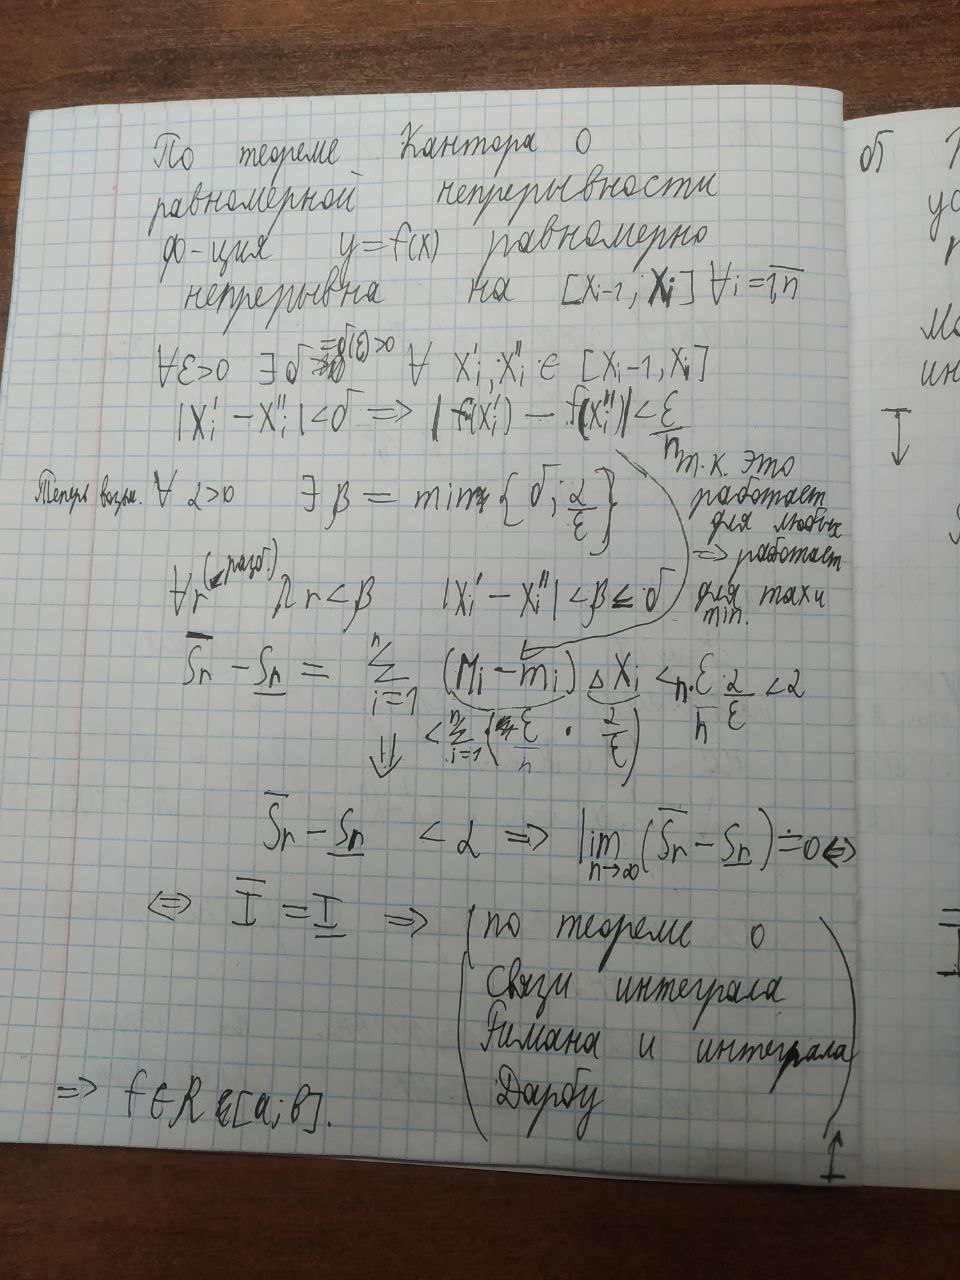 По теореме Кантора о
равномерной непрерывности
ф-ция y=f(x) равномерно
непрерывна на [xi-1; xi] ∀i=1,n
∀ε>0 ∃δ=δ(ε)>0 ∀ xi', xi'' ∈ [xi-1, xi]
|xi' - xi''| <δ => |f(xi') - f(xi'')| < ε/n
т.к. это
работает
для любых
=> работает
для max и
min.
Теперь возьм. ∀ α>0 ∃ β = min {δ; α/ε}
∀r (разб.) λr < β |xi' - xi''| < β ≤ δ
S̅r - S̲r = Σ i=1 n (Mi - mi) Δxi < n · ε/n · α/ε < α
< Σ i=1 n (ε/n · α/ε)
⇓
S̅r - S̲r < α => lim n→∞ (S̅r - S̲r) = 0 <=>
<=> I̅ = I̲ => (по теореме о
связи интеграла
Римана и интеграла
Дарбу)
=> f∈R [a; b].
об